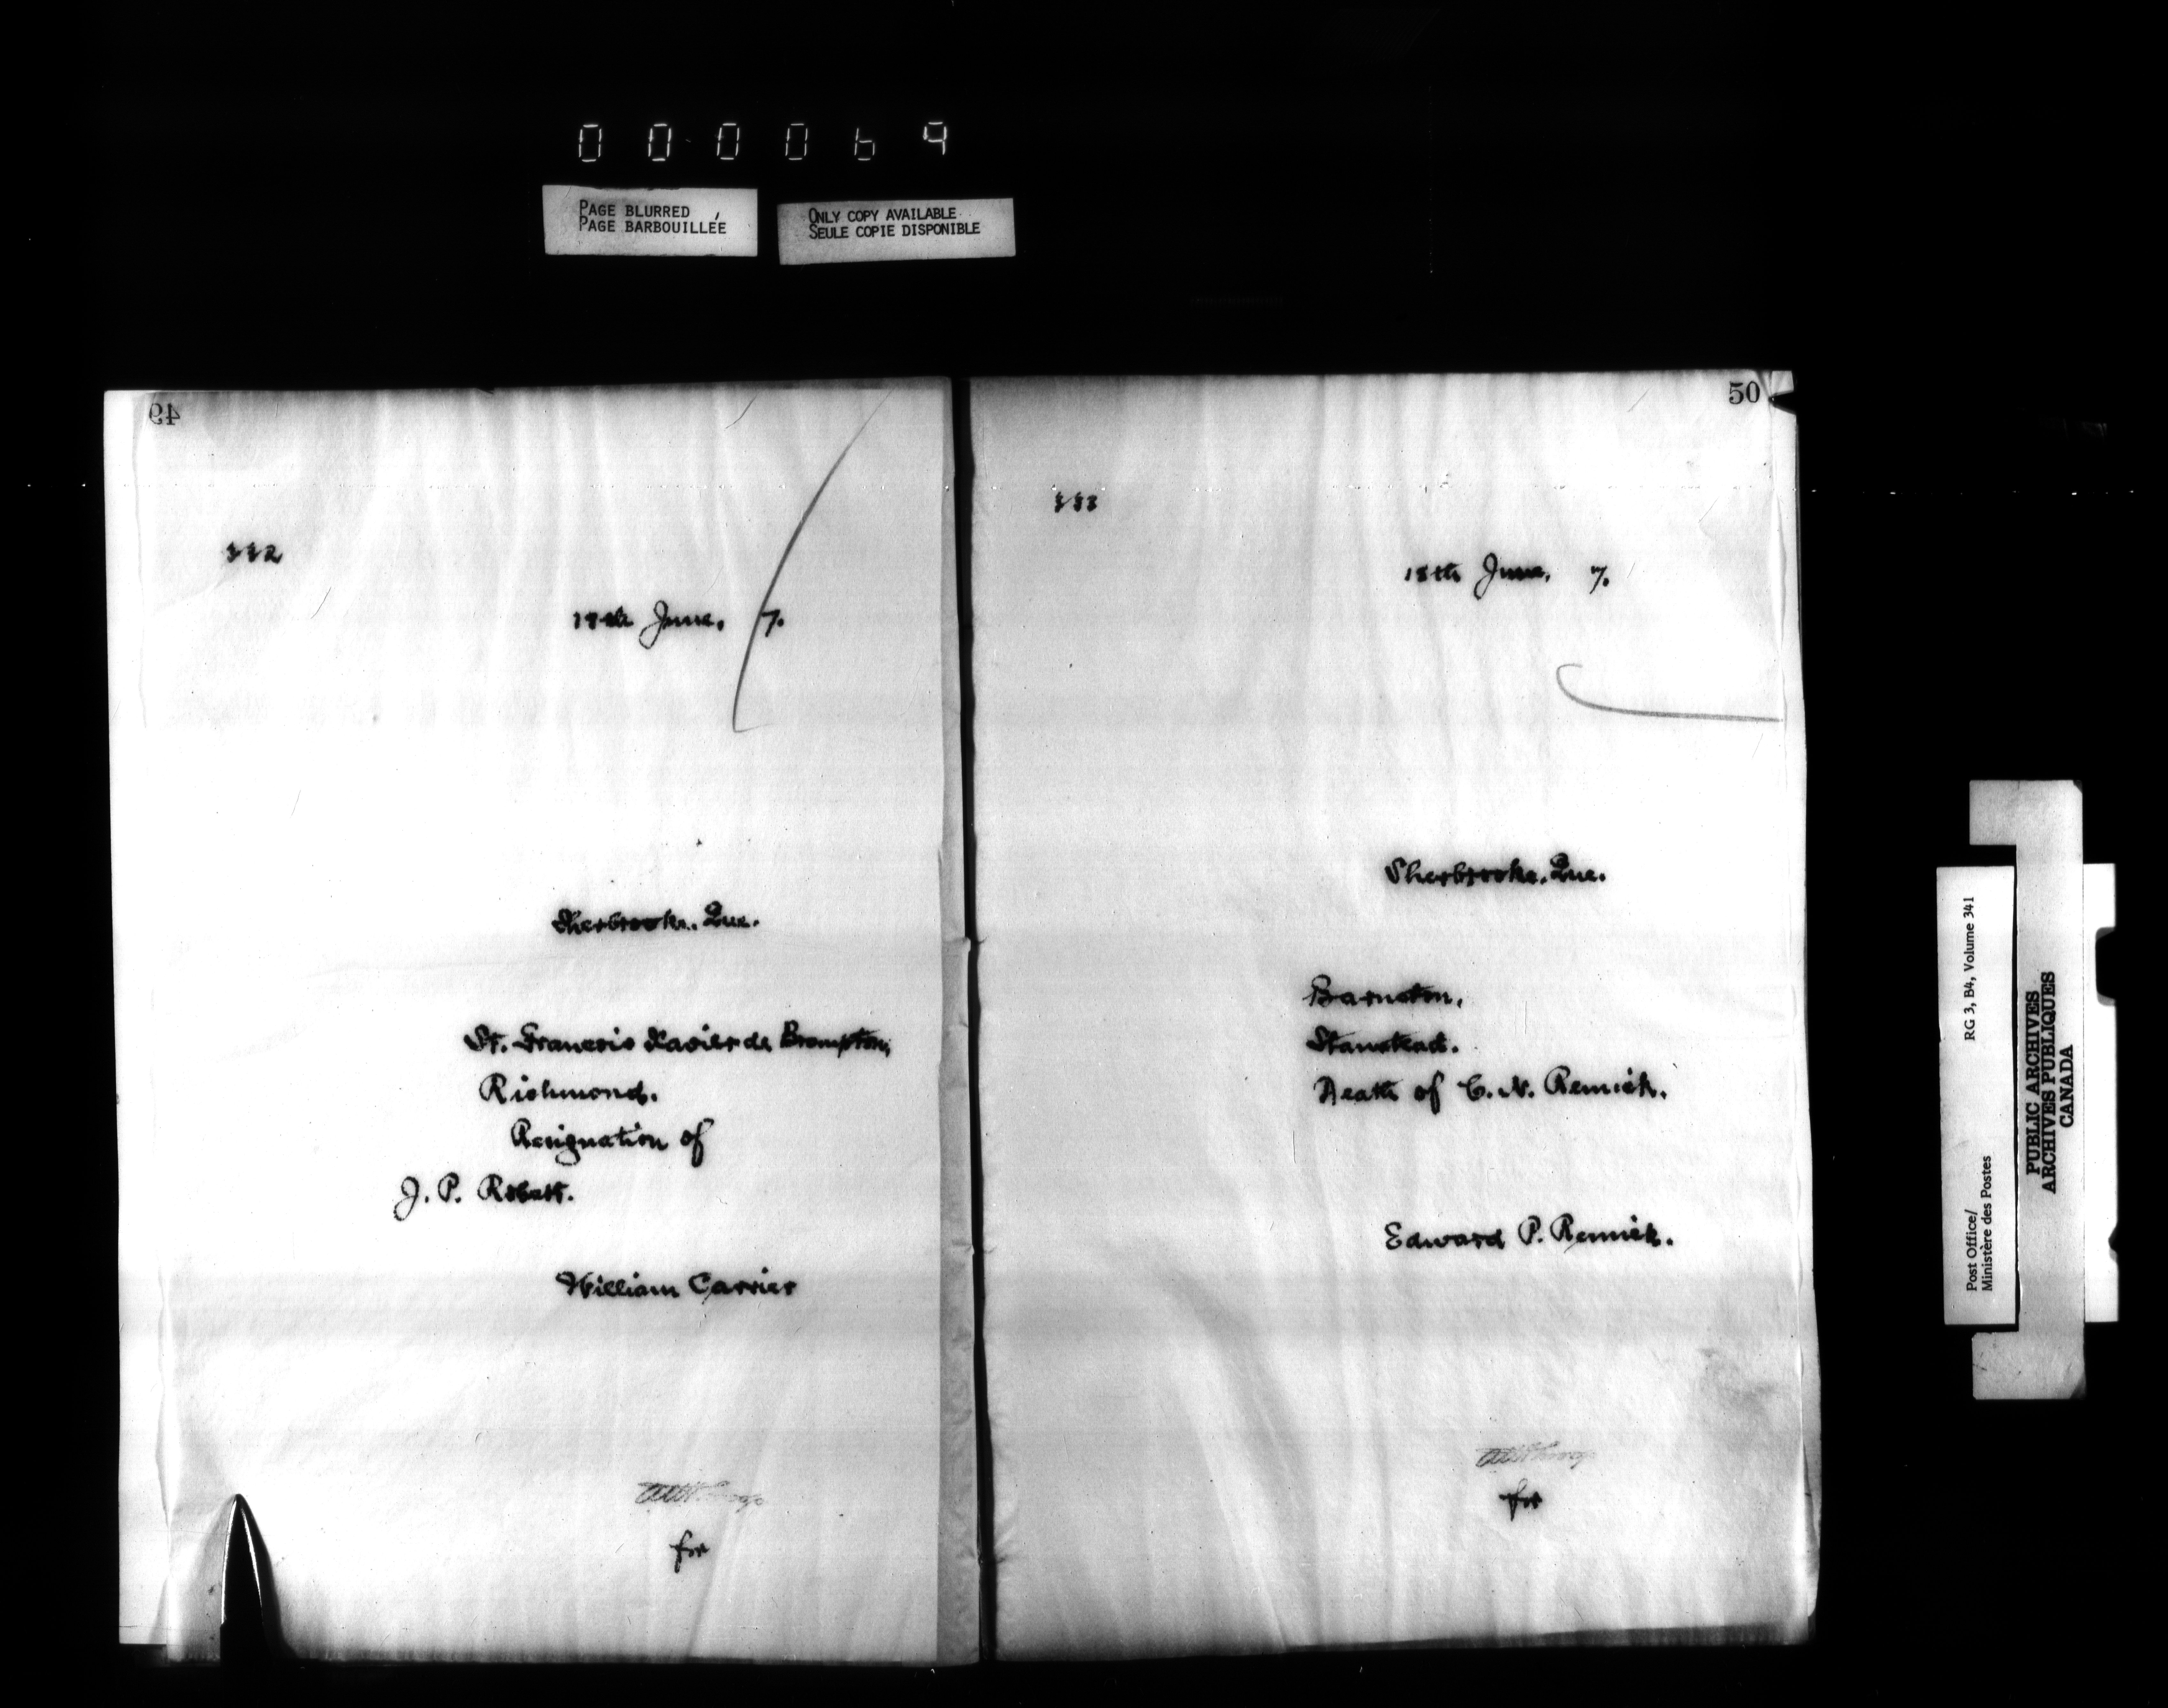 000069
PAGE BLURRED
PAGE BARBOUILLÉE
ONLY COPY AVAILABLE
SEULE COPIE DISPONIBLE
49
332
18th June, 7.
Sherbrooke, Que.
St. Francois Xavier de Brompton,
Richmond.
Resignation of
J. P.
William Carrier
for
50
333
18th June, 7.
Sherbrooke, Que.
Barnston,
Stanstead.
Death of C. N. Remick.
Edward P. Remick.
for
Post Office/
Ministère des Postes
RG 3, B4, Volume 341
PUBLIC ARCHIVES
ARCHIVES PUBLIQUES
CANADA